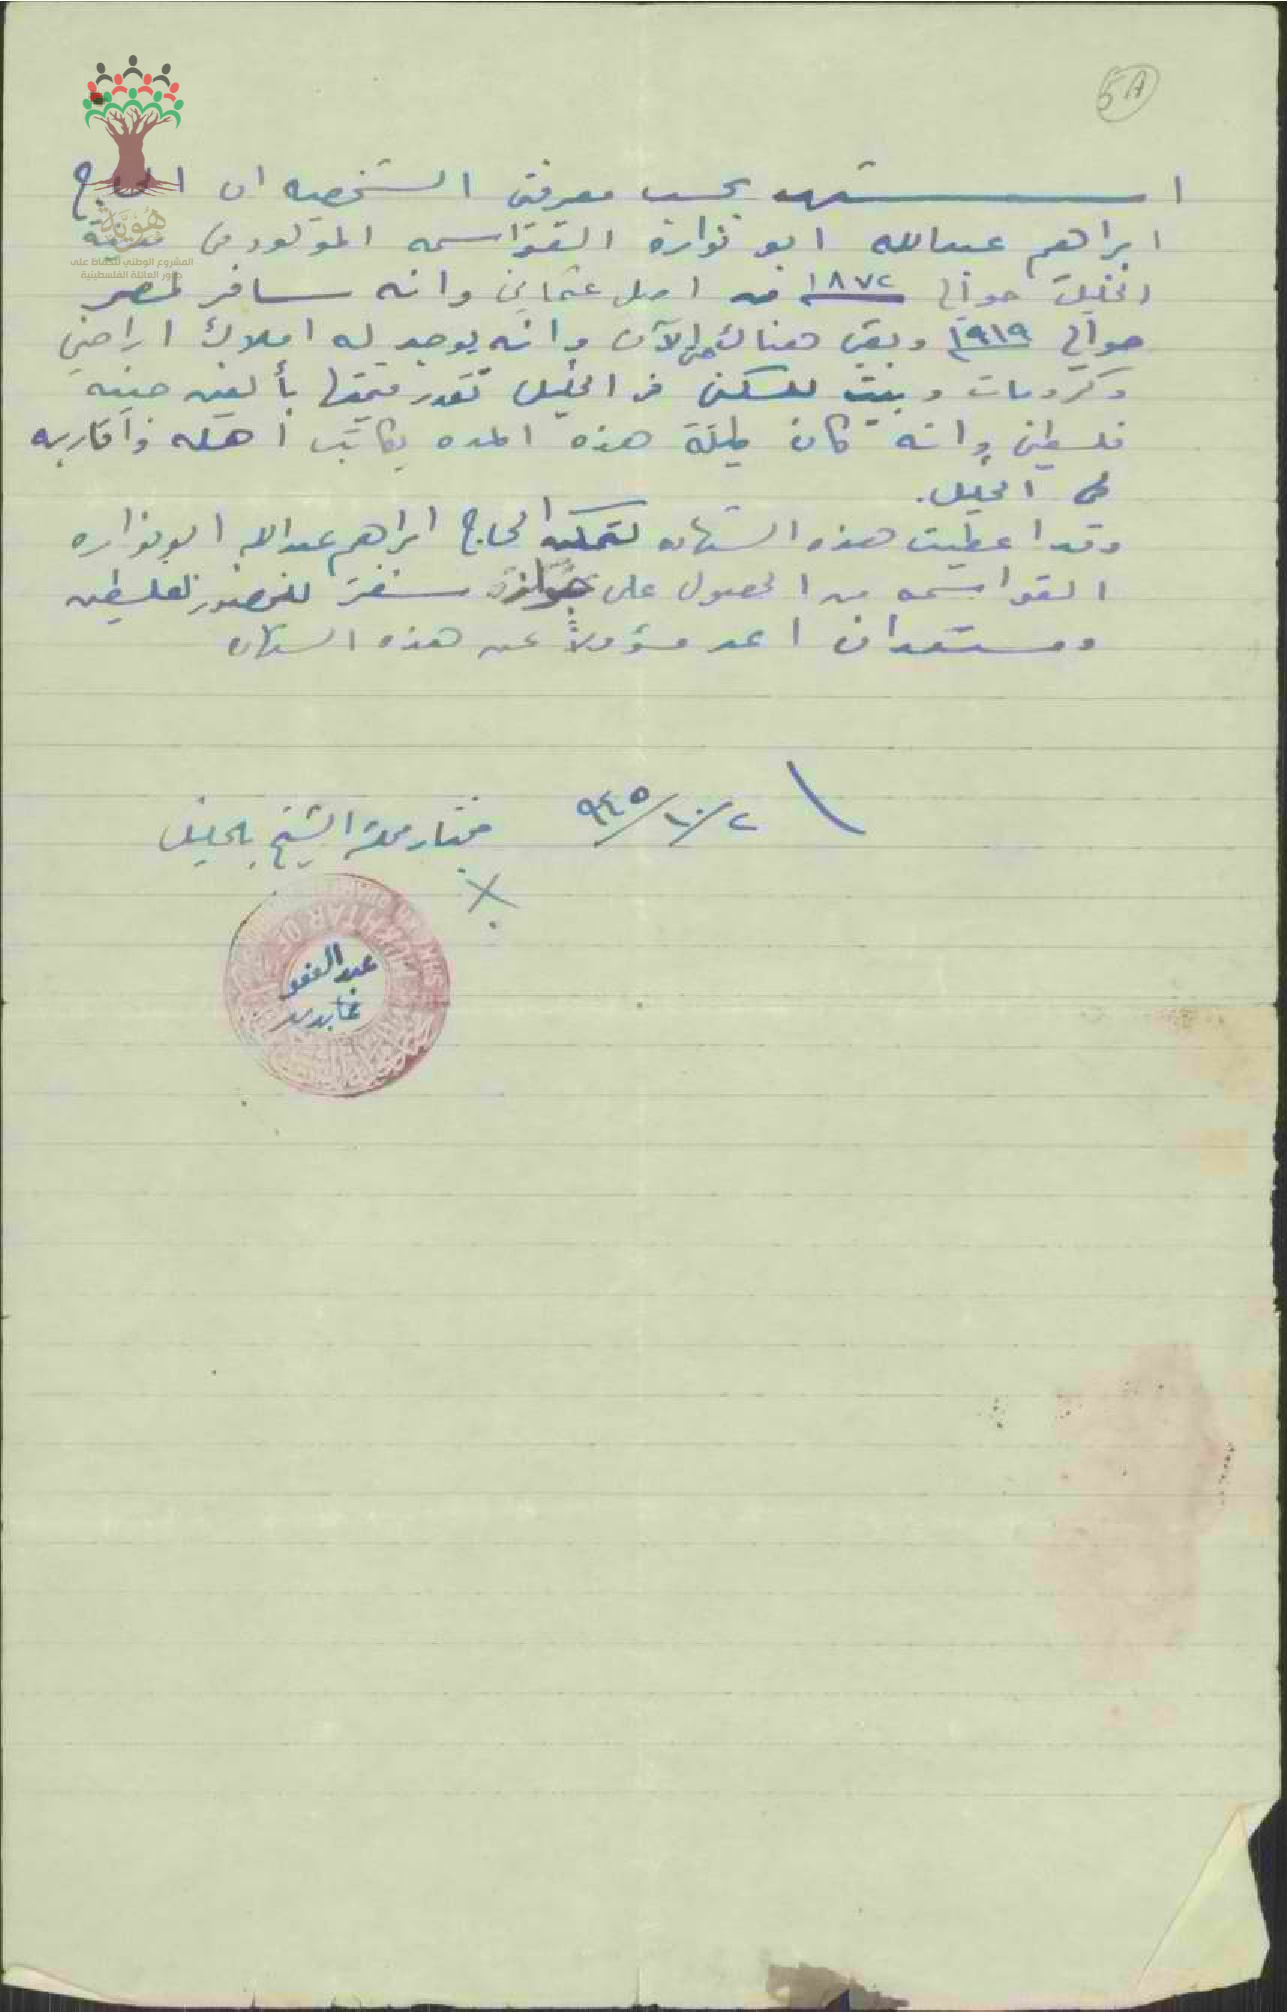 5A
اشهد بحسب معرفتي الشخصيه ان الحاج
ابراهيم عبدالله ابو نواره القواسمه المولود في مدينة
الخليل حوالي ١٨٧٢ من اصل عثماني وانه سافر لمصر
حوالي ١٩١٩ وبقي هناك حتى الآن وانه يوجد له املاك اراضي
وكرومات وبيت للسكن في الخليل تقدر قيمتها بألفين جنيه
فلسطيني وانه كان طيلة هذه المده يكاتب أهله وأقاربه
في الخليل.
وقد اعطيت هذه الشهاده لتمكين الحاج ابراهيم عبدالله ابو نواره
القواسمه من الحصول على جواز سفر للحضور لفلسطين
ومستعد ان اعد مسؤولاً عن هذه الشهاده
٢/١٠/٩٤٥
مختار محلة الشيخ بالخليل
MUKHTAR OF
عبد الغفو
عابدين
هُوِيَّة
المشروع الوطني للحفاظ على
جذور العائلة الفلسطينية